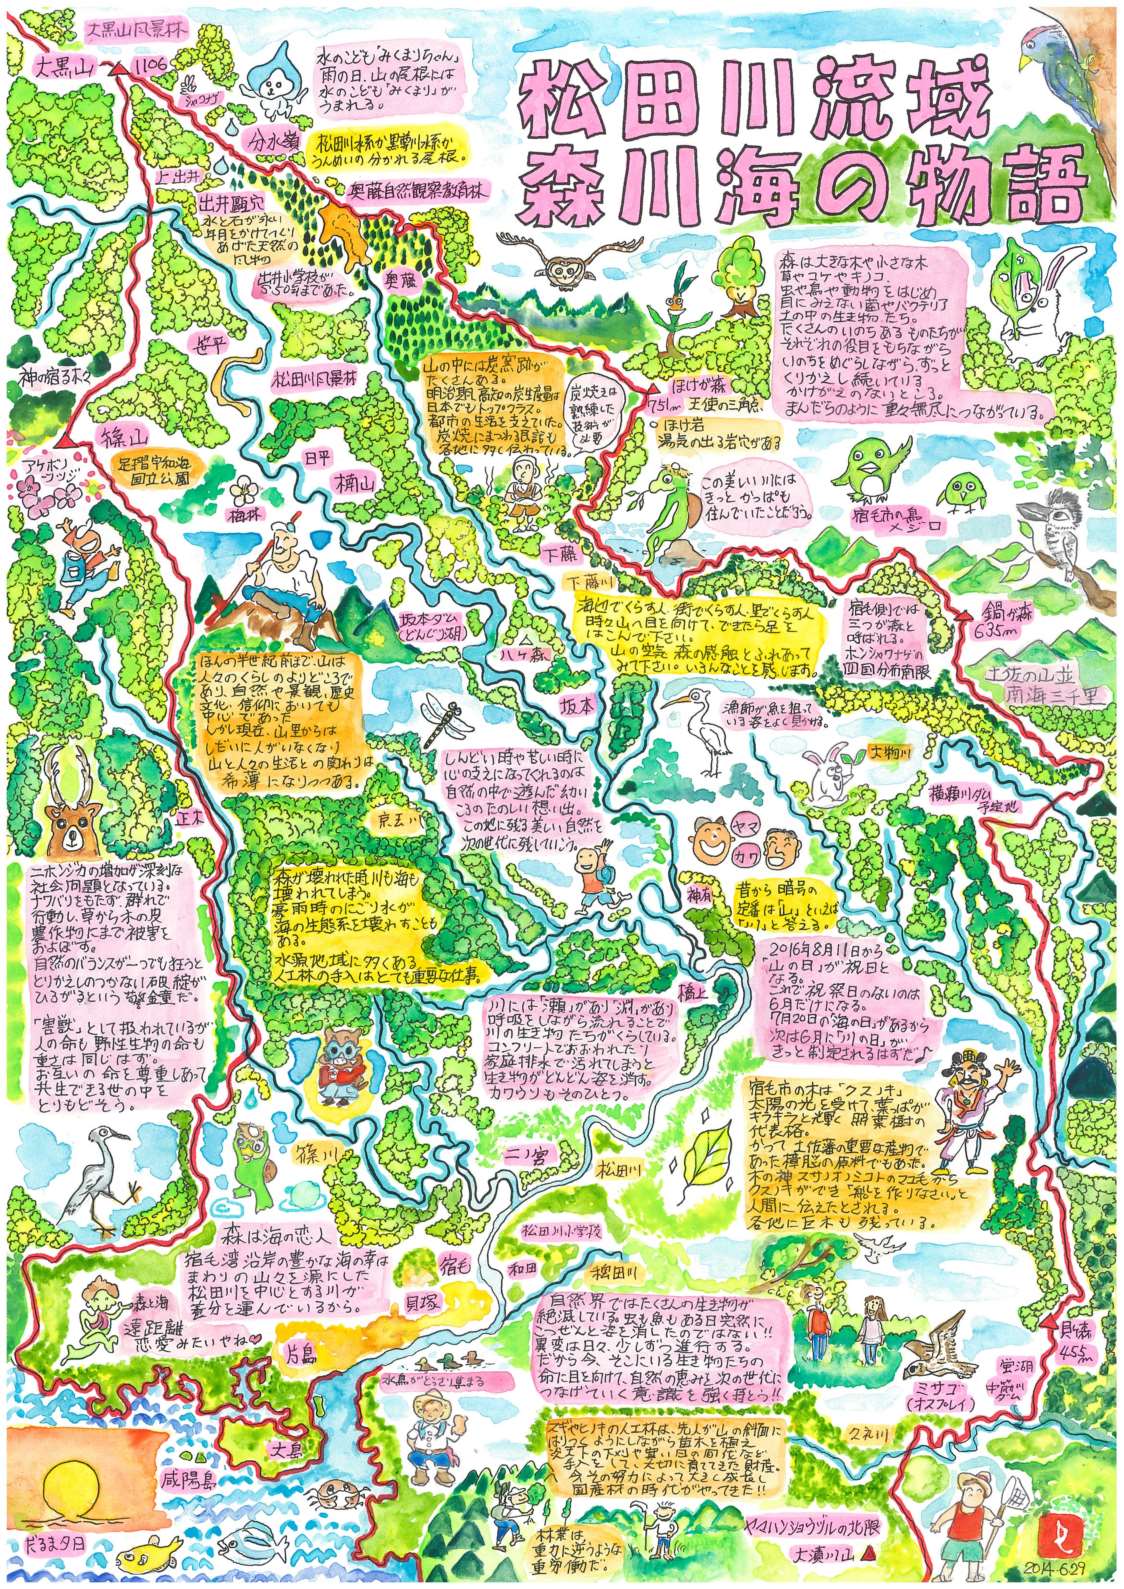 松田川流域
森川海の物語
大黒山風景林
大黒山
1106
シャクナゲ
水のこども「みくまりちゃん」
雨の日、山の尾根には
水のこども「みくまり」が
うまれる。
分水嶺
松田川水系か黒尊川水系か
うんめいの分かれる尾根。
上出井
出井甌穴
水と石が永い
年月をかけてつくり
あげた天然の
奥藤自然観察教育林
出井小学校が
S.50年まであった。
奥藤
笹平
神の宿る木々
松田川風景林
篠山
アケボノ
ツツジ
足摺宇和海
国立公園
梅林
日平
楠山
山の中には炭窯跡が
たくさんある。
明治期、高知の炭生産量は
日本でもトップクラス。
都市の生活を支えていた。
炭焼にまつわる民話も
各地に多く伝わっている。
炭焼きは
熟練した
技術が
必要
ほけが森
751m
天使の三角点、
ほけ岩
湯気の出る岩穴がある
森は大きな木や小さな木
草やコケやキノコ
虫や鳥や動物をはじめ
目にみえない菌やバクテリア
土の中の生き物たち。
たくさんのいのちあるものたちが
それぞれの役目をもちながら
いのちをめぐらしながら、ずっと
くりかえし続いている
かけがえのないところ。
まんだらのように重々無尽につながている。
この美しい川には
きっとかっぱも
住んでいたことだろう。
宿毛市の鳥
メジロ
下藤
下藤川
海辺でくらす人、街でくらす人、里でくらす人
時々山へ目を向けて、できたら足を
はこんで下さい。
山の空気、森の感触とふれあって
みて下さい。いろんなことを感じます。
宿毛側では
三つが森と
呼ばれる。
ホンシャクナゲの
四国分布南限
鍋ヶ森
635m
土佐の山並
南海三千里
坂本ダム
(どんぐり湖)
八ヶ森
坂本
ほんの半世紀前まで、山は
人々のくらしのよりどころで
あり、自然や景観、歴史
文化、信仰においても
中心であった
しかし現在、山里からは
しだいに人がいなくなり
山と人々の生活との関わりは
希薄になりつつある。
漁師が魚を狙って
いる姿をよく見かける。
しんどい時や苦しい時に
心の支えになってくれるのは
自然の中で遊んだ幼い
ころのたのしい想い出。
この地に残る美しい自然を
次の世代に残していこう。
大物川
横瀬川ダム
予定地
正木
京玉川
ヤマ
カワ
神有
昔から暗号の
定番は「山」といえば
「川」と答える。
ニホンジカの増加が深刻な
社会問題となっている。
ナワバリをもたず、群れで
行動し、草から木の皮
農作物にまで被害を
およぼす。
自然のバランスが一つでも狂うと
とりかえしのつかない破綻が
ひろがるという警鐘だ。
「害獣」として扱われているが
人の命も野性生物の命も
重さは同じはず。
お互いの命を尊重しあって
共生できる世の中を
とりもどそう。
森が壊われた時、川も海も
壊われてしまう。
豪雨時のにごり水が
海の生態系を壊わすことも
ある。
水源地域に多くある
人工林の手入はとても重要な仕事。
2016年8月11日から
「山の日」が祝日と
なる。
これで祝祭日のないのは
6月だけになる。
7月20日の海の日があるから
次は6月に「川の日」が
きっと制定されるはずだ♪
橋上
川には「瀬」があり「淵」があり
呼吸をしながら流れることで
川の生き物たちがくらしている。
コンクリートでおおわれたり
家庭排水で汚れてしまうと
生き物がどんどん姿を消す。
カワウソもそのひとつ。
宿毛市の木は「クスノキ」
太陽の光を受けて、葉っぱが
キラキラと輝く照葉樹の
代表格。
かつて土佐藩の重要な産物で
あった樟脳の原料でもあった。
木の神スサノオノミコトのマユ毛から
クスノキができ「船を作りなさい」と
人間に伝えたとされる。
各地に巨木も残っている。
篠川
二ノ宮
松田川
松田川小学校
和田
穏田川
宿毛
貝塚
森は海の恋人
宿毛湾沿岸の豊かな海の幸は
まわりの山々を源にした
松田川を中心とする川が
養分を運んでいるから。
森と海
遠距離
恋愛みたいやね♡
片島
水鳥がどっさり集まる
自然界ではたくさんの生き物が
絶滅している。虫も魚もある日突然に
こつぜんと姿を消したのではない!!
異変は日々、少しずつ進行する。
だから今、そこにいる生き物たちの
命に目を向けて、自然の恵みを次の世代に
つなげていく意識を強く持とう!!
月ヶ森
455m
蛍湖
中筋川
ダム
ミサゴ
(オスプレイ)
久礼川
スギやヒノキの人工林は、先人が山の斜面に
はりつくようにしながら苗木を植え
手入をして、大切に育ててきた財産。
今その努力によって大きく成長し
国産材の時代がやってきた!!
大島
咸陽島
だるま夕日
林業は、
重力に逆うような
重労働だ。
ヤマハンショウヅルの北限
大漬川山
2014.6.29